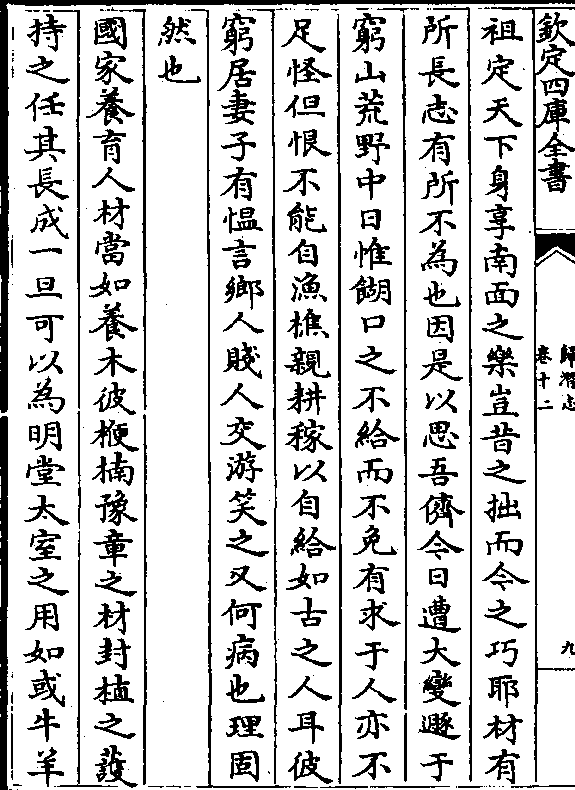 欽定四庫全書
歸潛志
卷十二
九
祖定天下身享南面之樂豈昔之拙而今之巧耶材有
所長志有所不為也因是以思吾儕今日遭大變遯于
窮山荒野中日惟餬口之不給而不免有求于人亦不
足怪但恨不能自漁樵親耕稼以自給如古之人耳彼
窮居妻子有愠言鄉人賤人交游笑之又何病也理固
然也
國家養育人材當如養木彼楩楠豫章之材封植之護
持之任其長成一旦可以為明堂太室之用如或牛羊